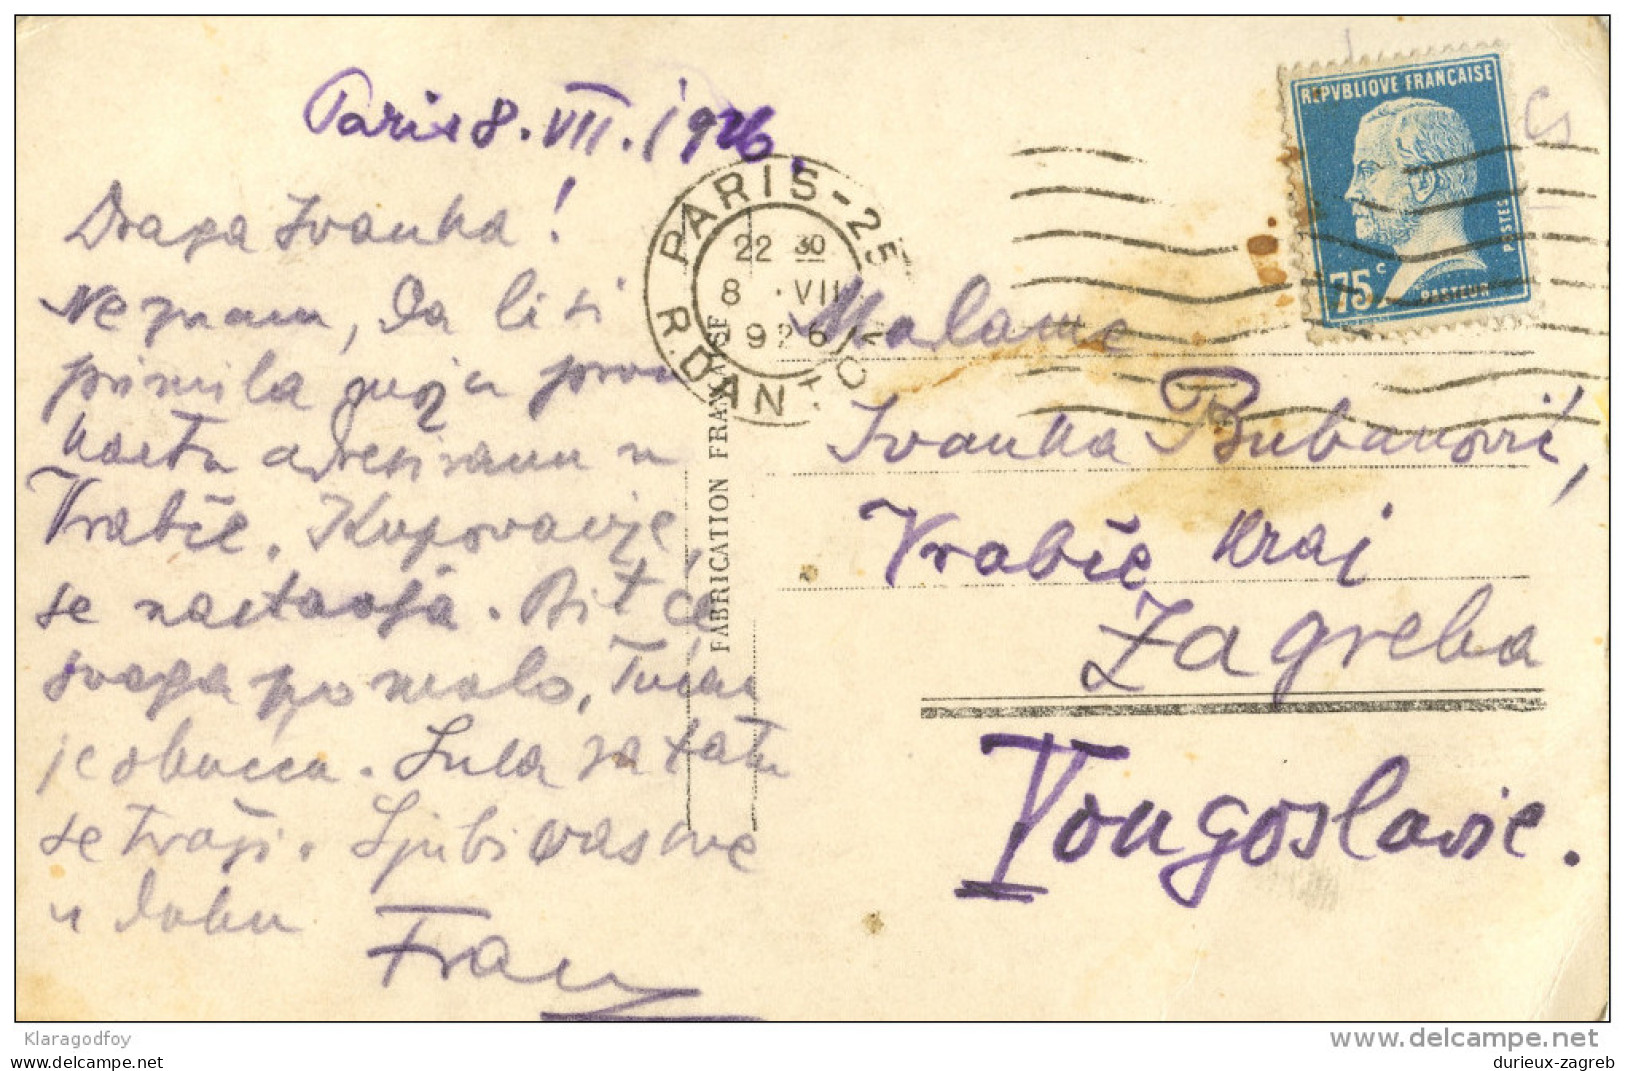 Paris 8.VII.1926.
Draga Ivanka!
Ne znam, da li si
primila moju prvu
kartu adresiranu u
Vrabče. Kupovanje
se nastavlja. Bit će
svega po malo,
je obuća. za tatu
se traži. Ljubi vas sve
u
Franz
PARIS-25
22 30
8 · VII
926
R. DANTON
REPVBLIQVE FRANÇAISE
POSTES
75c
PASTEUR
FABRICATION FRANÇAISE
Madame
Ivanka Bubanović,
Vrabče kraj
Zagreba
Yougoslavie.
Klaragodfoy
www.delcampe.net
durieux-zagreb